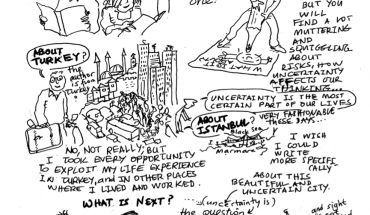 one!
BUT YOU
WILL
FIND A LOT
MUTTERING
AND
SQUIGGELING
ABOUT
RISKS, HOW
UNCERTAINTY
AFFECTS OUR
THINKING...
UNCERTAINTY IS THE MOST
CERTAIN PART OF OUR LIVES
ABOUT
TURKEY?
the
author
is from
Turkey
NO, NOT REALLY, BUT
I TOOK EVERY OPPORTUNITY
TO EXPLOIT MY LIFE EXPERIENCE
IN TURKEY, AND IN OTHER PLACES
WHERE I LIVED AND WORKED.
ABOUT
ISTANBUL?
VERY FASHIONABLE
THESE DAYS...
Black sea
Marmara
I WISH
I COULD
WRITE
MORE SPECIFI
CALLY
ABOUT THIS
BEAUTIFUL AND
UNCERTAIN CITY.
WHAT IS NEXT?
...(uncertainty is)
the question
and sight